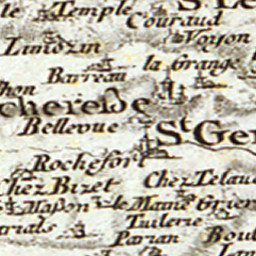 le Temple S. Le
Couraud
Limozin Voyson
Barreau la Grange
chereBe
Bellevue St Ger
Rochefort
Chez Bizet Chez Telaud
Masson le Maine Grier
Tuilerie
Parian Boul